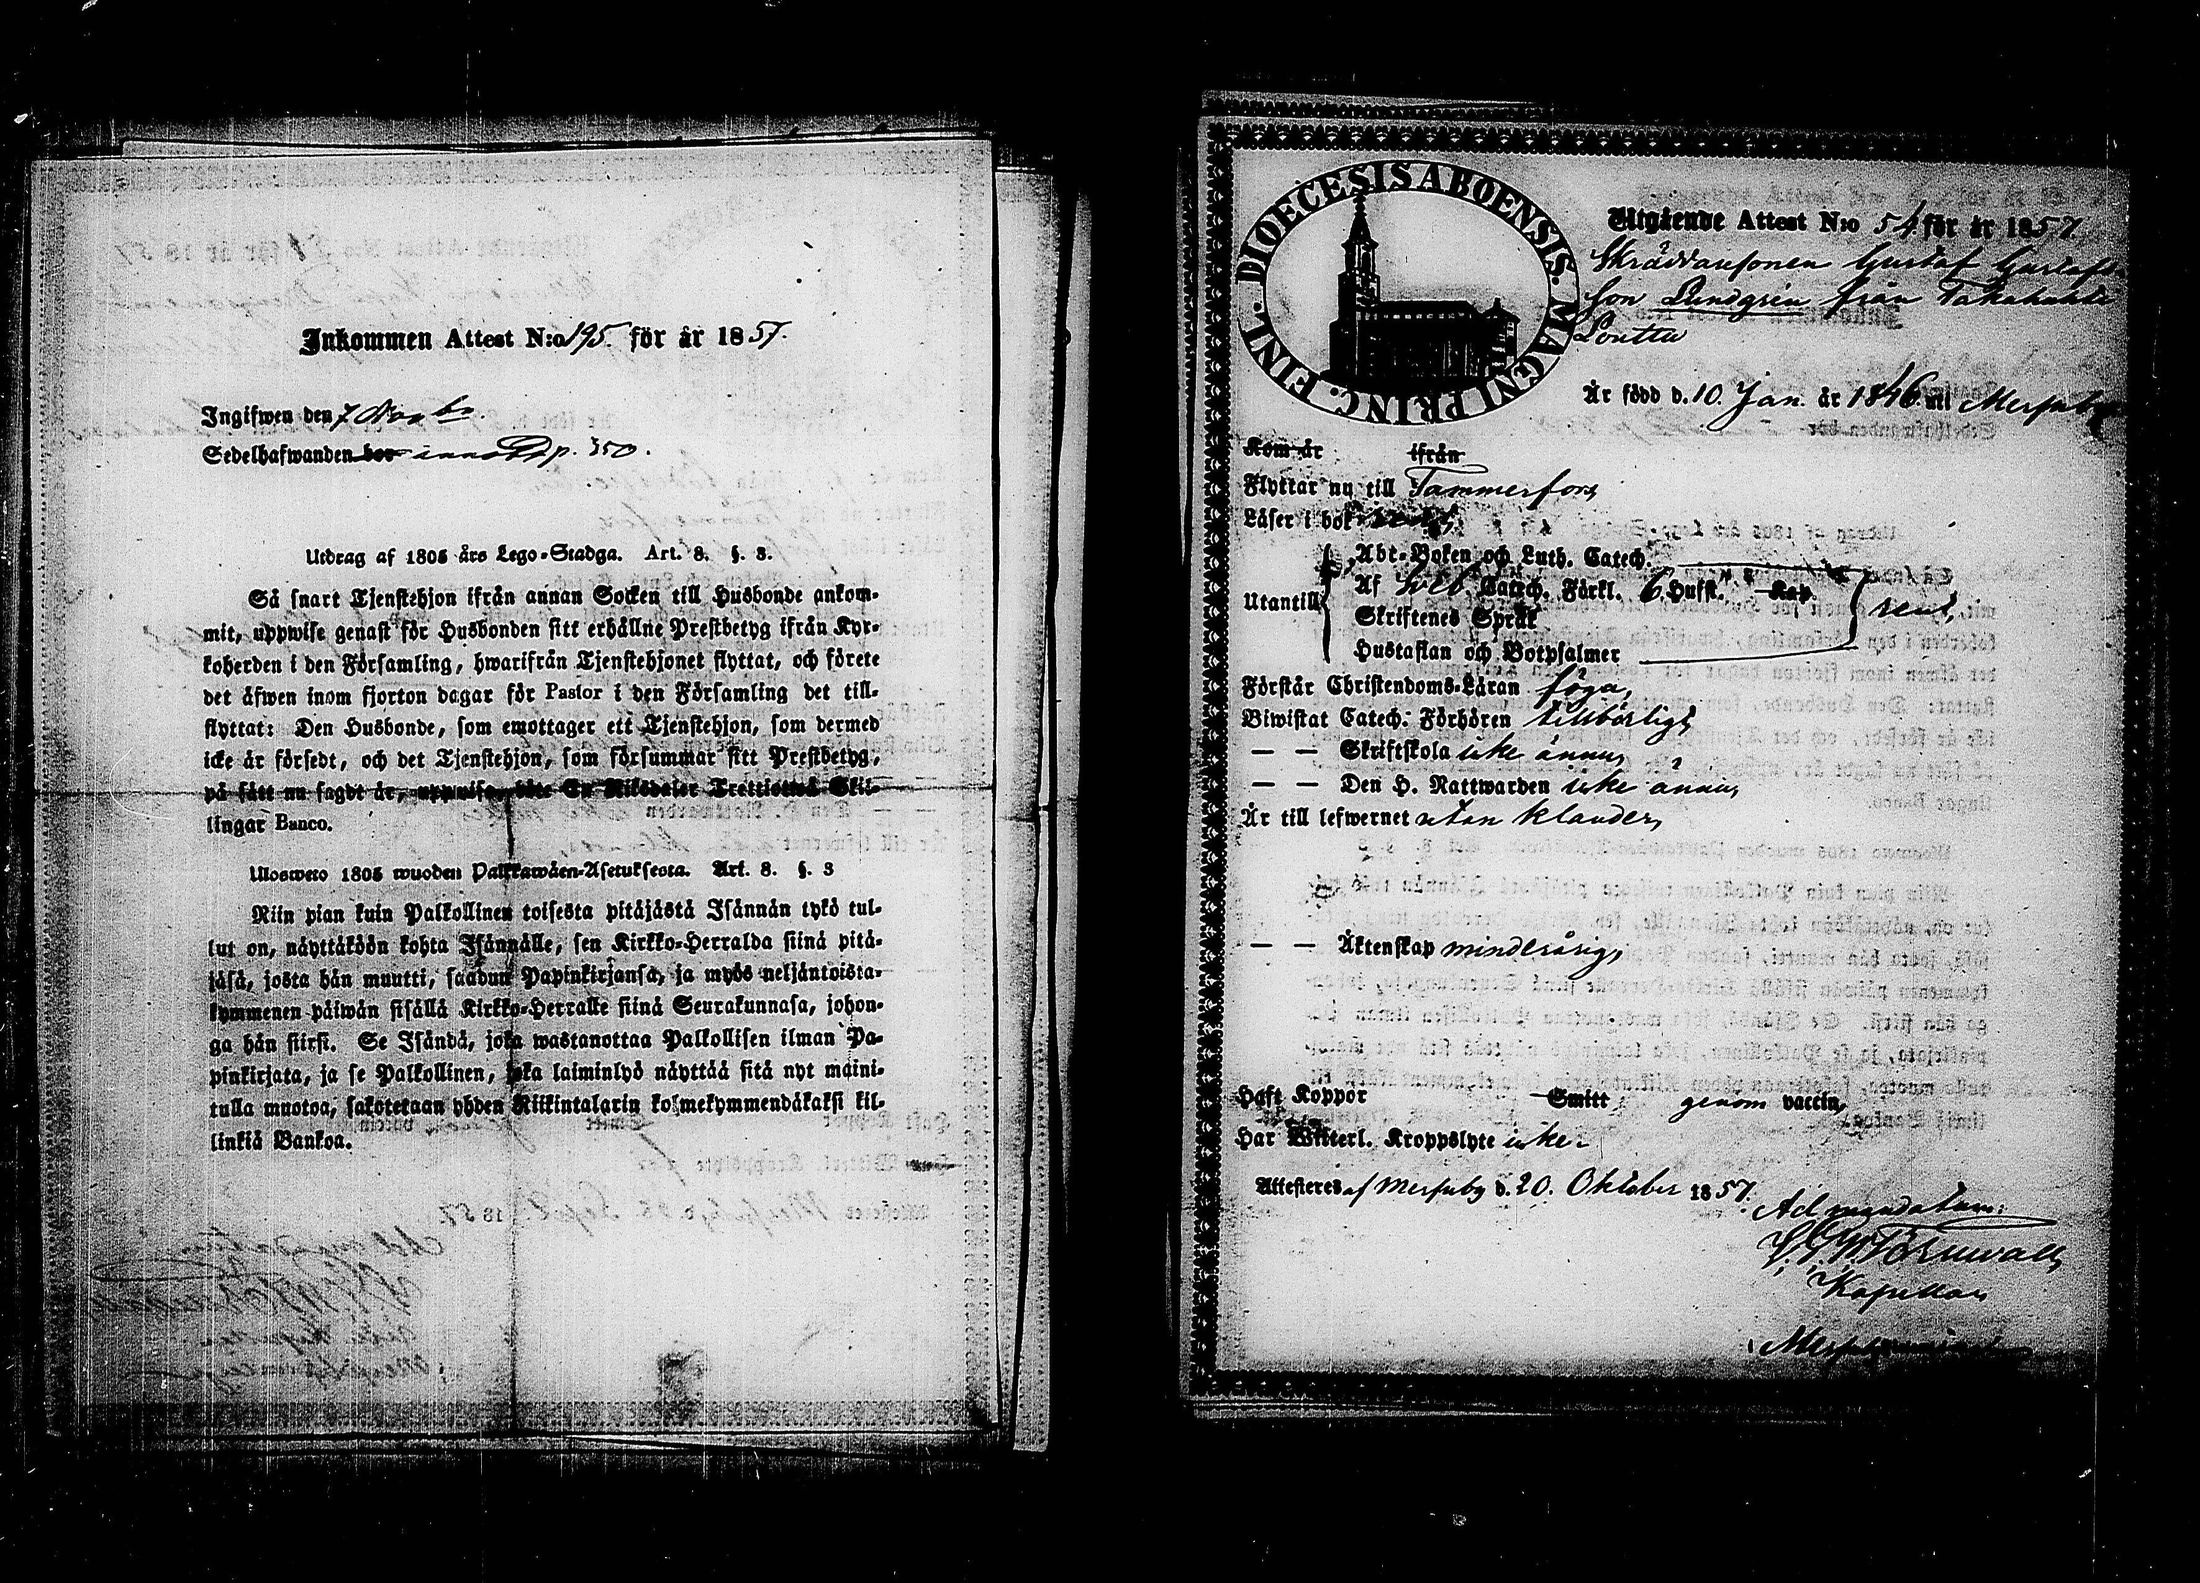 Inkommen Attest N:o 195. för år 1857.
Ingifwen den 7 Novbr.
Sedelhafwanden bor inna p. 350.
Utdrag af 1805 års Lego-Stadga. Art. 8. §. 3.
Så snart Tjenstehjon ifrån annan Socken till Husbonde ankom-
mit, uppwise genast för Husbonden sitt erhållne Prestbetyg ifrån Kyr-
koherden i den Församling, hwarifrån Tjenstehjonet flyttat, och förete
det äfwen inom fjorton dagar för Pastor i den Församling det till-
flyttat: Den Husbonde, som emottager ett Tjenstehjon, som dermed
icke är försedt, och det Tjenstehjon, som försummar sitt Prestbetyg,
på sätt nu sagdt är, uppwisa, böte En Riksdaler Trettiotwå Skil-
lingar Banco.
Ulosweto 1805 wuoden Palkkawäen-Asetuksesta. Art. 8. §. 3
Niin pian kuin Palkollinen toisesta pitäjästä Isännän tykö tul-
lut on, näyttäköön kohta Isännälle, sen Kirkko-Herralda siinä pitä-
jäsä, josta hän muutti, saadun Papinkirjansa, ja myös neljäntoista-
kymmenen päiwän sisällä Kirkko-Herralle siinä Seurakunnasa, johon-
ga hän siirsi. Se Isändä, joka wastanottaa Palkollisen ilman Pa-
pinkirjata, ja se Palkollinen, joka laiminlyö näyttää sitä nyt maini-
tulla muotoa, sakotetaan yhden Riikintalarin kolmekymmendäkaksi kil-
linkiä Bankoa.
DIOECESIS ABOENSIS. MAGNI PRINC. FINL.
Utgående Attest N:o 54 för år 1857
Skräddaresonen Gustaf Gustafs-
son Lundgren från
Är född d. 10 Jan. år 1846 uti Messuby
Kom år ifrån
Flyttar nu till Tammerfors,
Läser i bok rent,
Utantill
Abc-Boken och Luth. Catech.
Af Sveb. Catech. Förkl. 6 Hufst. Kap.
Skriftenes Språk
Hustaflan och Botpsalmer
rent,
Förstår Christendoms-Läran föga,
Biwistat Catech. Förhören tillbörligt,
— — Skriftskola icke ännu,
— — Den H. Nattwarden icke ännu,
Är till lefwernet utan klander,
— — Äktenskap minderårig,
Haft Koppor Smitt genom vaccin,
Har Witterl. Kroppslyte icke.
Attesteres af Messuby d. 20. Oktober 1857.
Ad mandatum:
Kapellan